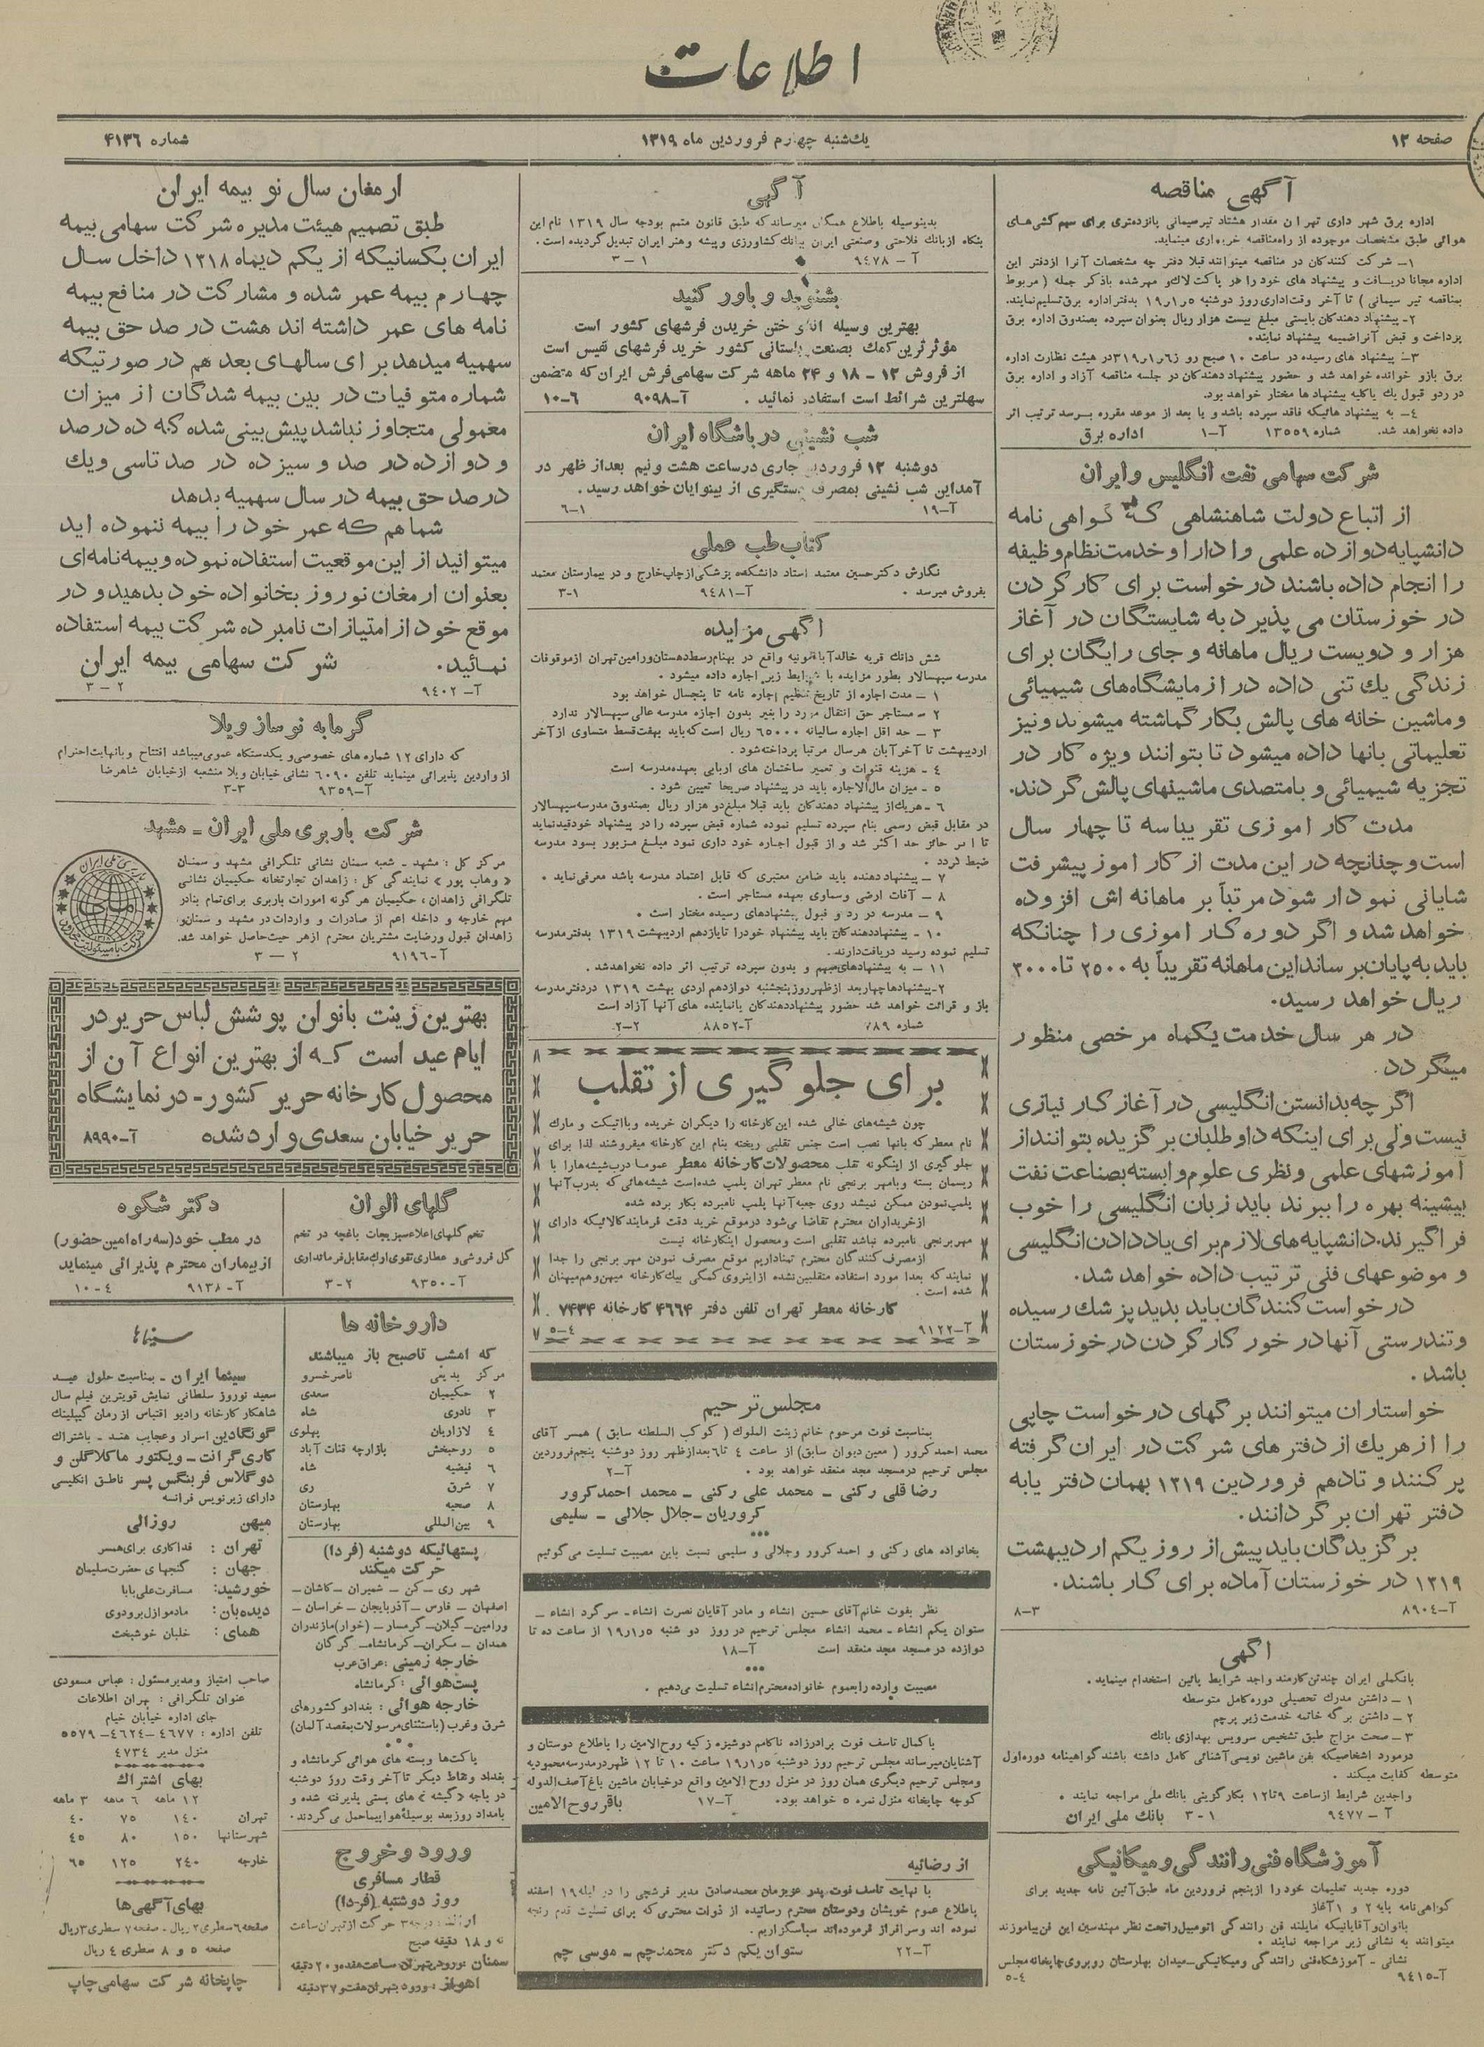 اطلاعات
صفحه ۱۲
یک‌شنبه چهارم فروردین ماه ۱۳۱۹
شماره ۴۱۳۶
آگهی مناقصه
اداره برق شهرداری تهران مقدار هشتاد تیر سیمانی پانزده‌متری برای سیم‌کشی‌های
هوائی طبق مشخصات موجوده از راه مناقصه خریداری مینماید.
۱- شرکت کنندگان در مناقصه میتوانند قبلا دفترچه مشخصات آنرا از دفتر این
اداره مجانا دریافت و پیشنهاد های خود را در پاکت لاک و مهر شده با ذکر جمله (مربوط
بمناقصه تیر سیمانی) تا آخر وقت اداری روز دوشنبه ۱۹/۱/۵ بدفتر اداره برق تسلیم نمایند.
۲- پیشنهاد دهندگان بایستی مبلغ بیست هزار ریال بعنوان سپرده بصندوق اداره برق
پرداخت و قبض آنرا ضمیمه پیشنهاد نمایند.
۳- پیشنهاد های رسیده در ساعت ۱۰ صبح روز ۳۱۹/۱/۶ در هیئت نظارت اداره
برق باز و خوانده خواهد شد و حضور پیشنهاد دهندگان در جلسه مناقصه آزاد و اداره برق
در رد و قبول یک یا کلیه پیشنهاد ها مختار خواهد بود.
۴- به پیشنهاد هائیکه فاقد سپرده باشد و یا بعد از موعد مقرره برسد ترتیب اثر
داده نخواهد شد. شماره ۱۳۵۵۹ آ-۱ اداره برق
شرکت سهامی نفت انگلیس و ایران
از اتباع دولت شاهنشاهی که گواهی نامه
دانشپایه دوازده علمی را دارا و خدمت نظام وظیفه
را انجام داده باشند درخواست برای کار کردن
در خوزستان می پذیرد به شایستگان در آغاز
هزار و دویست ریال ماهانه و جای رایگان برای
زندگی یک تنی داده در آزمایشگاه‌های شیمیائی
و ماشین خانه های پالش بکار گماشته میشوند و نیز
تعلیماتی بآنها داده میشود تا بتوانند ویژه کار در
تجزیه شیمیائی و یا متصدی ماشینهای پالش گردند.
مدت کار آموزی تقریبا سه تا چهار سال
است و چنانچه در این مدت از کار آموز پیشرفت
شایانی نمودار شود مرتباً بر ماهانه اش افزوده
خواهد شد و اگر دوره کار آموزی را چنانکه
باید به پایان برساند این ماهانه تقریباً به ۲۵۰۰ تا ۳۰۰۰
ریال خواهد رسید.
در هر سال خدمت یکماه مرخصی منظور
میگردد.
اگر چه بدانستن انگلیسی در آغاز کار نیازی
نیست ولی برای اینکه داوطلبان برگزیده بتوانند از
آموزشهای علمی و نظری علوم وابسته بصناعت نفت
بیشینه بهره را ببرند باید زبان انگلیسی را خوب
فرا گیرند. دانشپایه های لازم برای یاد دادن انگلیسی
و موضوعهای فنی ترتیب داده خواهد شد.
درخواست کنندگان باید بدید پزشک رسیده
و تندرستی آنها درخور کار کردن در خوزستان
باشد.
خواستاران میتوانند برگهای درخواست چاپی
را از هریک از دفترهای شرکت در ایران گرفته
پر کنند و تا دهم فروردین ۱۳۱۹ بهمان دفتر یا به
دفتر تهران برگردانند.
برگزیدگان باید پیش از روز یکم اردیبهشت
۱۳۱۹ در خوزستان آماده برای کار باشند.
آ-۸۹۰۴ ۸-۳
آگهی
بانک ملی ایران چند تن کارمند واجد شرایط پائین استخدام مینماید.
۱- داشتن مدرک تحصیلی دوره کامل متوسطه
۲- داشتن برگه خاتمه خدمت زیر پرچم
۳- صحت مزاج طبق تشخیص سرویس بهداری بانک
درمورد اشخاصیکه بفن ماشین نویسی آشنائی کامل داشته باشند گواهینامه دوره اول
متوسطه کفایت میکند.
واجدین شرایط از ساعت ۹ تا ۱۲ بکارگزینی بانک ملی مراجعه نمایند.
آ - ۹۴۷۷ ۳-۱ بانک ملی ایران
آموزشگاه فنی رانندگی و میکانیکی
دوره جدید تعلیمات خود را از پنجم فروردین ماه طبق آئین نامه جدید برای
گواهی‌نامه پایه ۲ و ۱ آغاز
بانوان و آقایانیکه مایلند فن رانندگی اتومبیل را تحت نظر مهندسین این فن بیاموزند
میتوانند به نشانی زیر مراجعه نمایند.
نشانی - آموزشگاه فنی رانندگی و میکانیکی - میدان بهارستان روبروی چاپخانه مجلس
آ-۹۴۱۵ ۵-۴
آگهی
بدینوسیله باطلاع همگان میرساند که طبق قانون متمم بودجه سال ۱۳۱۹ نام این
بنگاه از بانک فلاحتی و صنعتی ایران ببانک کشاورزی و پیشه و هنر ایران تبدیل گردیده است.
آ - ۹۴۷۸ ۳-۱
بشنوید و باور کنید
بهترین وسیله اندوختن خریدن فرشهای کشور است
مؤثرترین کمک بصنعت باستانی کشور خرید فرشهای نفیس است
از فروش ۱۲ - ۱۸ و ۲۴ ماهه شرکت سهامی فرش ایران که متضمن
سهلترین شرائط است استفاده نمائید. آ-۹۰۹۸ ۱۰-۶
شب نشینی در باشگاه ایران
دوشنبه ۱۲ فروردین جاری در ساعت هشت و نیم بعد از ظهر در
آمد این شب نشینی بمصرف دستگیری از بینوایان خواهد رسید.
آ-۱۹ ۶-۱
کتاب طب عملی
نگارش دکتر حسین معتمد استاد دانشکده پزشکی از چاپ خارج و در بیمارستان معتمد
بفروش میرسد. آ-۹۴۸۱ ۳-۱
آگهی مزایده
شش دانگ قریه خالدآباد واقع در بهنام وسط دهستان ورامین تهران از موقوفات
مدرسه سپهسالار بطور مزایده با شرایط زیر اجاره داده میشود.
۱- مدت اجاره از تاریخ تنظیم اجاره نامه تا پنجسال خواهد بود
۲- مستاجر حق انتقال مورد را بغیر بدون اجازه مدرسه عالی سپهسالار ندارد
۳- حد اقل اجاره سالیانه ۶۵۰۰۰ ریال است که باید بهفت قسط متساوی از آخر
اردیبهشت تا آخر آبان هر سال مرتبا پرداخته شود.
۴- هزینه قنوات و تعمیر ساختمان های اربابی بعهده مدرسه است
۵- میزان مال‌الاجاره باید در پیشنهاد صریحا تعیین شود.
۶- هریک از پیشنهاد دهندگان باید قبلا مبلغ دو هزار ریال بصندوق مدرسه سپهسالار
در مقابل قبض رسمی بنام سپرده تسلیم نموده شماره قبض سپرده را در پیشنهاد خود قید نماید
تا اگر حائز حد اکثر شد و از قبول اجاره خود داری نمود مبلغ مزبور بسود مدرسه
ضبط گردد.
۷- پیشنهاد دهنده باید ضامن معتبری که قابل اعتماد مدرسه باشد معرفی نماید.
۸- آفات ارضی و سماوی بعهده مستاجر است.
۹- مدرسه در رد و قبول پیشنهادهای رسیده مختار است.
۱۰- پیشنهاد دهندگان باید پیشنهاد خود را تا یازدهم اردیبهشت ۱۳۱۹ بدفتر مدرسه
تسلیم نموده رسید دریافت دارند.
۱۱- به پیشنهادهای مبهم و بدون سپرده ترتیب اثر داده نخواهد شد.
۲- پیشنهادها چهار بعد از ظهر روز پنجشنبه دوازدهم اردی بهشت ۱۳۱۹ در دفتر مدرسه
باز و قرائت خواهد شد حضور پیشنهاد دهندگان یا نماینده های آنها آزاد است
شماره ۷۸۹ آ-۸۸۵۲ ۲-۲
برای جلوگیری از تقلب
چون شیشه‌های خالی شده این کارخانه را دیگران خریده و با اتیکت و مارک
نام معطر که بآنها نصب است جنس تقلبی ریخته بنام این کارخانه میفروشند لذا برای
جلوگیری از اینگونه تقلب محصولات کارخانه معطر عموما درب شیشه‌ها را با
ریسمان بسته و با مهر برنجی نام معطر تهران پلمپ شده است شیشه‌هائی که بدرب آنها
پلمپ نمودن ممکن نمیشد روی جعبه آنها پلمپ نامبرده بکار برده شده
از خریداران محترم تقاضا می‌شود در موقع خرید دقت فرمایند کالائیکه دارای
مهر برنجی نامبرده نباشد تقلبی است و محصول اینکارخانه نیست
از مصرف کنندگان محترم تمنا داریم موقع مصرف نمودن مهر برنجی را جدا
نمایند که بعدا مورد استفاده متقلبین نشده از اینروی کمکی بیک کارخانه میهن و هم میهنان
شده است.
کارخانه معطر تهران تلفن دفتر ۴۶۶۴ کارخانه ۷۴۳۴
آ-۹۱۲۲ ۵-۴
مجلس ترحیم
بمناسبت فوت مرحوم خانم زینت الملوک (کوکب السلطنه سابق) همسر آقای
محمد احمد کرور (معین دیوان سابق) از ساعت ۴ تا ۶ بعد از ظهر روز دوشنبه پنجم فروردین
مجلس ترحیم در مسجد مجد منعقد خواهد بود. آ-۲
رضا قلی رکنی - محمد علی رکنی - محمد احمد کرور
کروریان - جلال جلالی - سلیمی
بخانواده های رکنی و احمد کرور و جلالی و سلیمی نسبت باین مصیبت تسلیت می‌گوئیم
نظر بفوت خانم آقای حسین انشاء و مادر آقایان نصرت انشاء - سرگرد انشاء -
ستوان یکم انشاء - محمد انشاء مجلس ترحیم در روز دو شنبه ۱۹/۱/۵ از ساعت ده تا
دوازده در مسجد مجد منعقد است آ-۱۸
مصیبت وارده را بعموم خانواده محترم انشاء تسلیت می‌دهیم.
با کمال تاسف فوت برادرزاده ناکامم دوشیزه زکیه روح‌الامین را باطلاع دوستان و
آشنایان میرساند مجلس ترحیم روز دوشنبه ۱۹/۱/۵ ساعت ۱۰ تا ۱۲ ظهر در مدرسه محمودیه
و مجلس ترحیم دیگری همان روز در منزل روح الامین واقع در خیابان ماشین باغ آصف‌الدوله
کوچه چاپخانه منزل نمره ۵ خواهد بود. آ-۱۷ باقر روح‌الامین
از رضائیه
با نهایت تاسف فوت پدر عزیزمان محمد صادق مدیر فرشچی را در لیله ۱۹ اسفند
باطلاع عموم خویشان و دوستان محترم رسانیده از ذوات محترمی که برای تسلیت قدم رنجه
نموده اند و سرافراز فرموده‌اند سپاسگزاریم.
آ-۲۲ ستوان یکم دکتر محمد جم - موسی جم
ارمغان سال نو بیمه ایران
طبق تصمیم هیئت مدیره شرکت سهامی بیمه
ایران بکسانیکه از یکم دیماه ۱۳۱۸ داخل سال
چهارم بیمه عمر شده و مشارکت در منافع بیمه
نامه های عمر داشته اند هشت در صد حق بیمه
سهمیه میدهد برای سالهای بعد هم در صورتیکه
شماره متوفیات در بین بیمه شدگان از میزان
معمولی متجاوز نباشد پیش‌بینی شده که ده درصد
و دوازده در صد و سیزده در صد تا سی و یک
درصد حق بیمه در سال سهمیه بدهد
شما هم که عمر خود را بیمه ننموده اید
میتوانید از این موقعیت استفاده نموده و بیمه نامه‌ای
بعنوان ارمغان نوروز بخانواده خود بدهید و در
موقع خود از امتیازات نامبرده شرکت بیمه استفاده
نمائید. شرکت سهامی بیمه ایران
آ-۹۴۰۲ ۳-۲
گرمابه نوساز ویلا
که دارای ۱۲ شماره های خصوصی و یکدستگاه عمومی میباشد افتتاح و با نهایت احترام
از واردین پذیرائی مینماید تلفن ۶۰۹۰ نشانی خیابان ویلا منشعبه از خیابان شاهرضا
آ-۹۳۵۹ ۳-۳
شرکت باربری ملی ایران - مشهد
مرکز کل: مشهد - شعبه سمنان نشانی تلگرافی مشهد و سمنان
«وهاب پور» نمایندگی کل: زاهدان تجارتخانه حکیمیان نشانی
تلگرافی زاهدان: حکیمیان هر گونه امورات باربری برای تمام بنادر
مهم خارجه و داخله اعم از صادرات و واردات در مشهد و سمنان و
زاهدان قبول و رضایت مشتریان محترم از هر حیث حاصل خواهد شد.
آ-۹۱۹۶ ۳-۲
بهترین زینت بانوان پوشش لباس حریر در
ایام عید است که از بهترین انواع آن از
محصول کارخانه حریر کشور - در نمایشگاه
حریر خیابان سعدی وارد شده آ-۸۹۹۰
گلهای الوان
تخم گلهای اعلا و سبزیجات باغچه در تخم
گل فروشی و عطاری تقوی ارک مقابل فرمانداری
آ-۹۳۵۰ ۳-۲
دکتر شکوه
در مطب خود (سه راه امین حضور)
از بیماران محترم پذیرائی مینماید
آ-۹۱۳۸ ۱۰-۴
داروخانه ها
که امشب تا صبح باز میباشند
مرکز بدیعی ناصرخسرو
۲ حکیمیان سعدی
۳ نادری شاه
۴ لازاریان پهلوی
۵ روحبخش بازارچه قنات آباد
۶ فیضیه شاه
۷ شرق ری
۸ صحیه بهارستان
۹ بین‌المللی بهارستان
پستهائیکه دوشنبه (فردا)
حرکت میکند
شهر ری - کن - شمیران - کاشان -
اصفهان - فارس - آذربایجان - خراسان -
ورامین - گیلان - گرمسار - (خوار) مازندران
همدان - مکران - کرمانشاه - گرگان
خارجه زمینی: عراق عرب
پست هوائی: کرمانشاه
خارجه هوائی: بغداد و کشورهای
شرق و غرب (باستثنای مرسولات بمقصد آلمان)
پاکت‌ها و بسته های هوائی کرمانشاه و
بغداد و نقاط دیگر تا آخر وقت روز دوشنبه
در باجه «گیشه» های پستی پذیرفته شده و
بامداد روز بعد بوسیله هواپیما حمل می گردند.
ورود و خروج
قطار مسافری
روز دوشنبه (فردا)
درجه ۳ حرکت از تهران ساعت
و ۱۸ دقیقه صبح
سمنان: ورود بتهران ساعت هفده و ۲۰ دقیقه
اهواز: ورود بتهران هفت و ۳۷ دقیقه
سینماها
سینما ایران - بمناسبت حلول عید
سعید نوروز سلطانی نمایش قویترین فیلم سال
شاهکار کارخانه رادیو اقتباس از رمان کیپلینگ
گونگادین اسرار و عجایب هند - باشتراک
کاری گرانت - ویکتور ماکلاگلن و
دوگلاس فربنکس پسر ناطق انگلیسی
دارای زیرنویس فرانسه
میهن روزالی
تهران: فداکاری برای همسر
جهان: گنجهای حضرت سلیمان
خورشید: مسافرت علی بابا
دیده‌بان: مادموازل برودوی
همای: خلبان خوشبخت
صاحب امتیاز و مدیر مسئول: عباس مسعودی
عنوان تلگرافی: تهران اطلاعات
جای اداره خیابان خیام
تلفن اداره: ۴۶۷۷-۴۶۲۴-۵۵۷۹
منزل مدیر ۴۷۳۴
بهای اشتراک
۱۲ ماهه ۶ ماهه ۳ ماهه
تهران ۱۴۰ ۷۵ ۴۰
شهرستانها ۱۵۰ ۸۰ ۴۵
خارجه ۲۴۰ ۱۲۵ ۶۵
بهای آگهی‌ها
صفحه ۶ سطری ۲ ریال - صفحه ۷ سطری ۳ ریال
صفحه ۵ و ۸ سطری ۴ ریال
چاپخانه شرکت سهامی چاپ